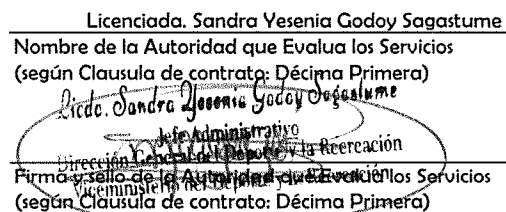 Licenciada. Sandra Yesenia Godoy Sagastume
Nombre de la Autoridad que Evalua los Servicios
(según Clausula de contrato: Décima Primera)
Licda. Sandra Yesenia Godoy Sagastume
Jefe Administrativo
Dirección General del Deporte y la Recreación
Viceministerio del Deporte y la Recreación
Firma y sello de la Autoridad que Evalua los Servicios
(según Clausula de contrato: Décima Primera)